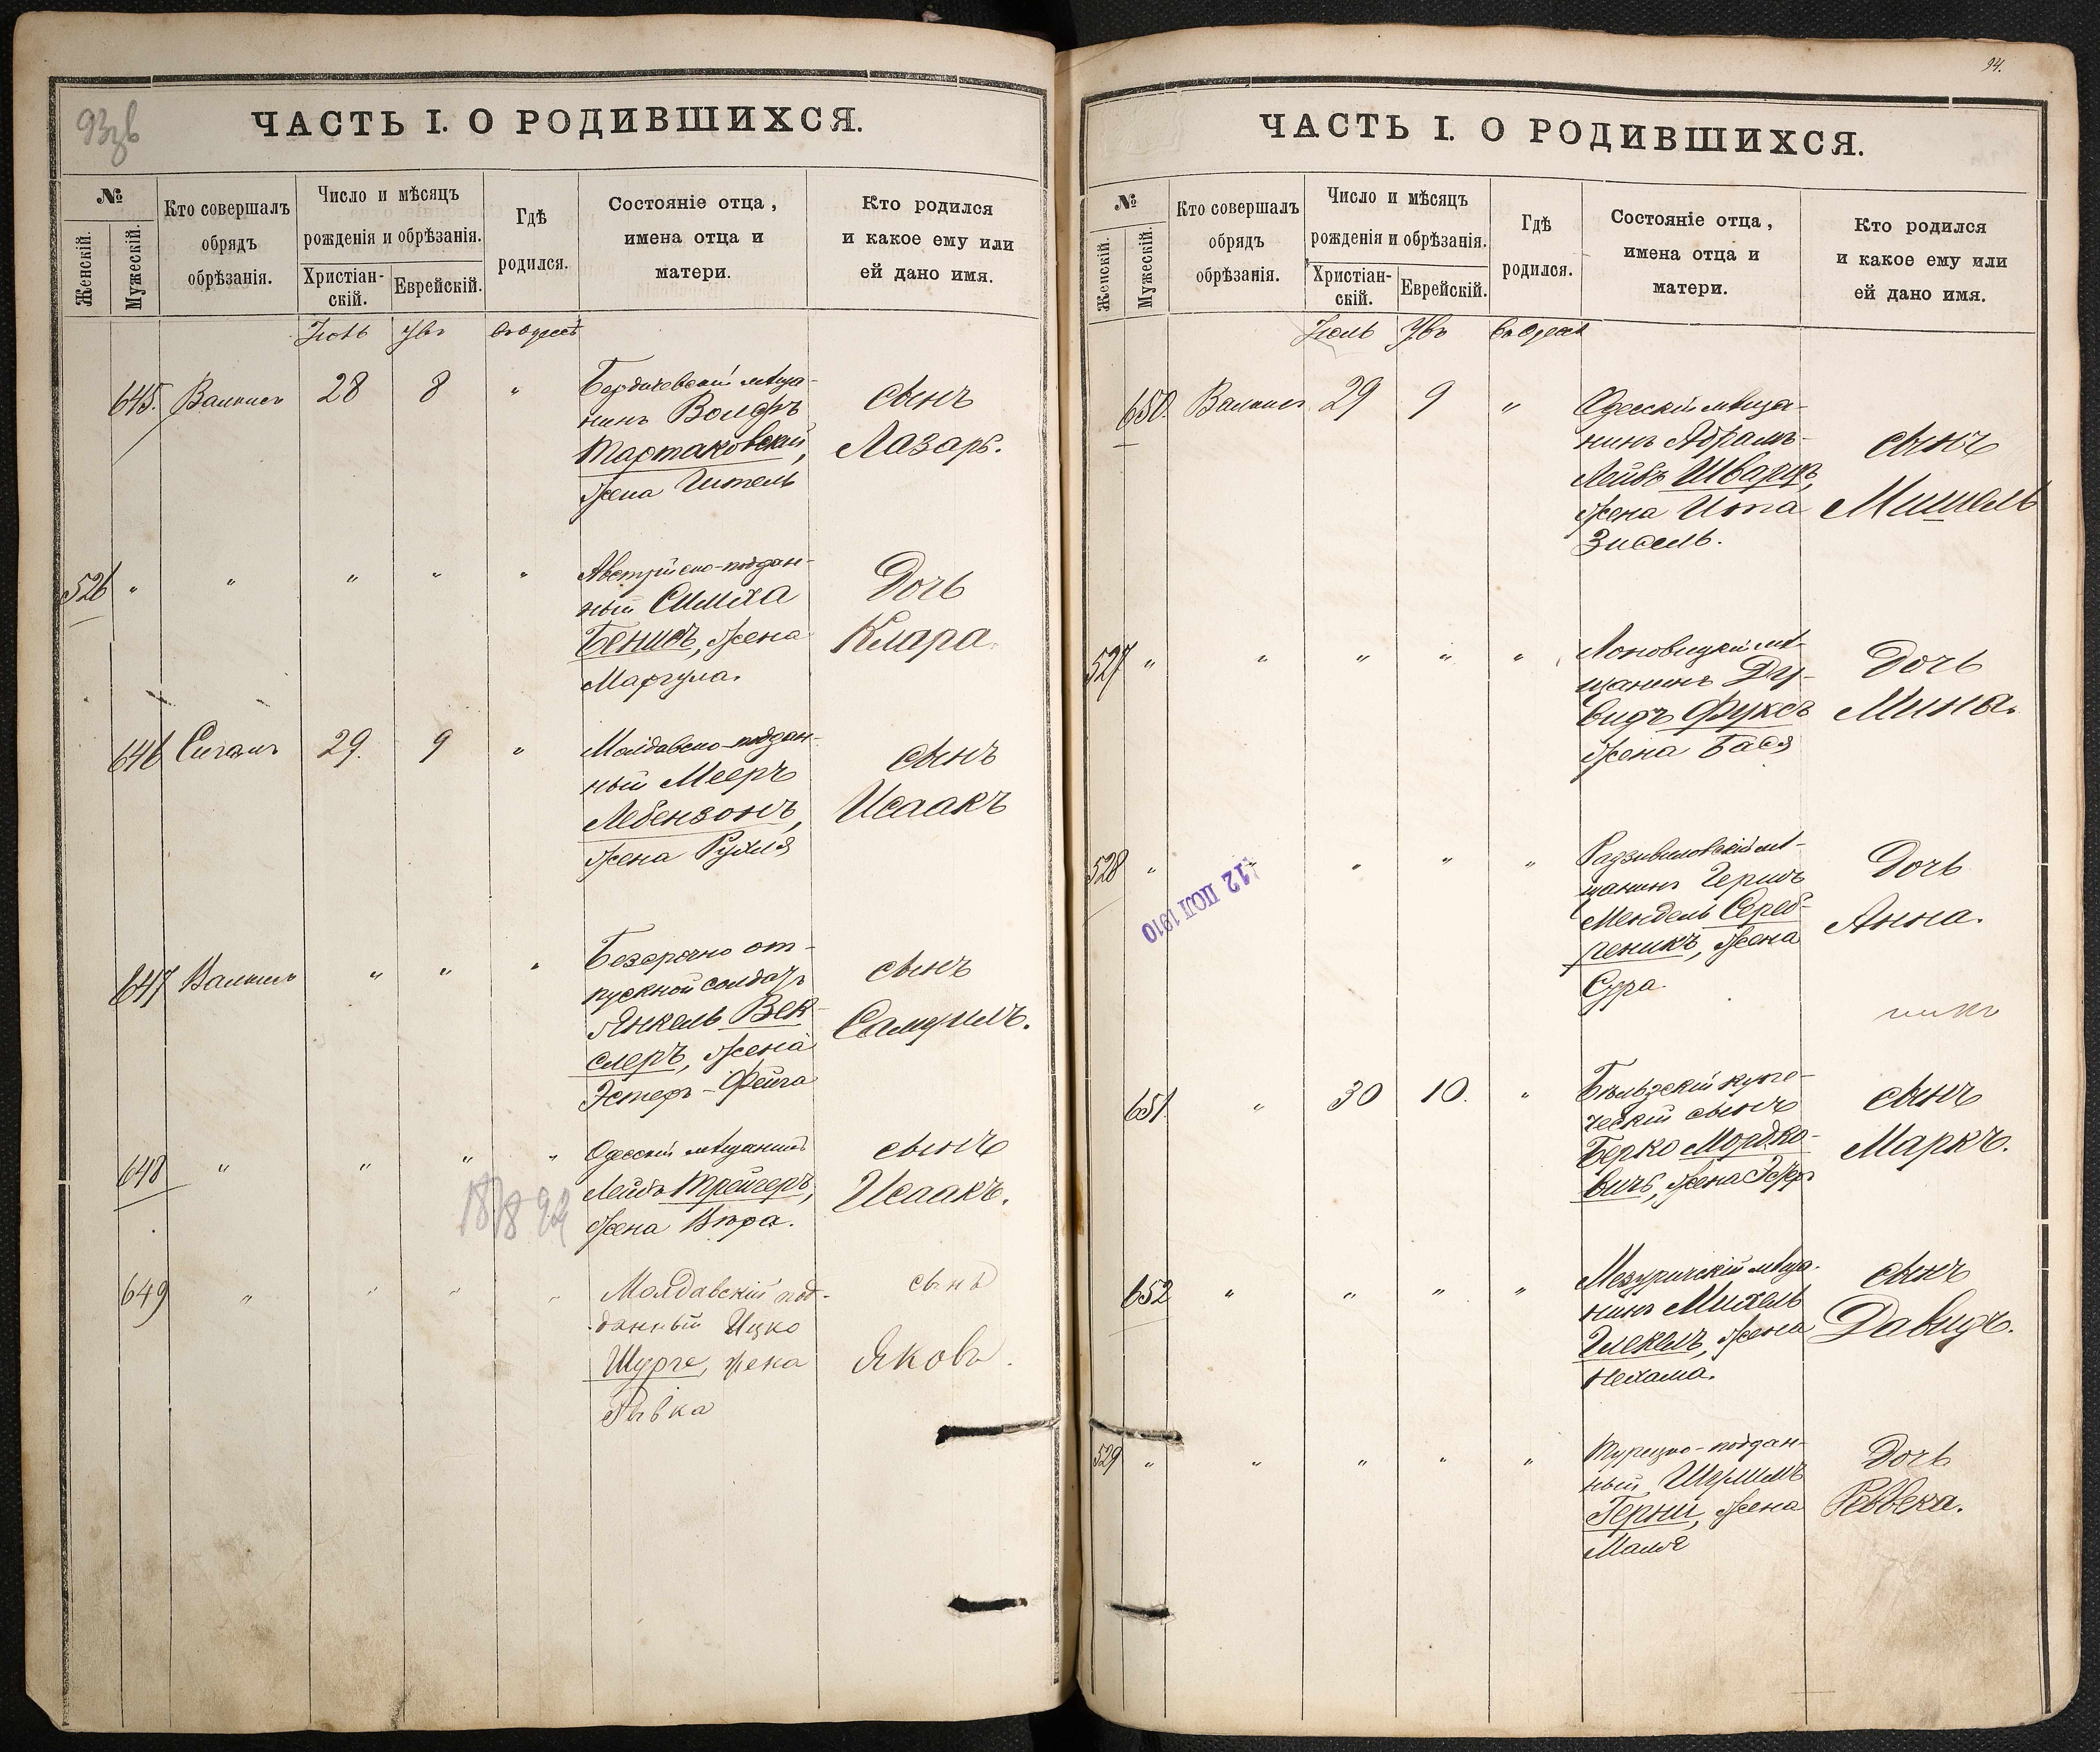 93
ЧАСТЬ I. О РОДИВШИХСЯ.
№
Женскій.
Мужескій.
Кто совершалъ
обрядъ
обрѣзанія.
Число и мѣсяцъ
рожденія и обрѣзанія.
Христіан-
скій.
Еврейскій.
Гдѣ
родился.
Состояніе отца,
имена отца и
матери.
Кто родился
и какое ему или
ей дано имя.
Іюль
въ Одессѣ
645. 28 8 "
Бердичевскій мѣща-
нинъ Вольфъ
Тартаковскій,
жена Гитель
сынъ
Лазарь.
526 " " " " "
Австрійско-поддан-
ный Симха
Бенисъ, жена
Маргула.
Дочь
Клара.
646 29. 9 "
Молдавско-поддан-
ный Мееръ
Лебензонъ,
жена Рухля
сынъ
Исаакъ
647 " " "
Безсрочно от-
пускной солдатъ
Янкель Век-
слеръ, жена
Эстеръ-Фейга
сынъ
Самуилъ.
648 " " " "
Одесскій мѣщанинъ
Лейбъ Трейгеръ,
жена Вѣра.
сынъ
Исаакъ.
649 " " " "
Молдавскій под-
данный Ицко
Шурге, жена
Рывка
сынъ
Яковъ.
94.
ЧАСТЬ I. О РОДИВШИХСЯ.
№
Женскій.
Мужескій.
Кто совершалъ
обрядъ
обрѣзанія.
Число и мѣсяцъ
рожденія и обрѣзанія.
Христіан-
скій.
Еврейскій.
Гдѣ
родился.
Состояніе отца,
имена отца и
матери.
Кто родился
и какое ему или
ей дано имя.
Іюль
въ Одессѣ
650. 29 9 "
Одесскій мѣща-
нинъ Абрамъ-
Лейбъ Шварцъ,
жена Ита
Зисель.
сынъ
Мишель
527 " " " " "
мѣ-
щанинъ Ду-
видъ Фуксъ
жена Бася
Дочь
Мина.
528 " " " " "
Радзивиловскій мѣ-
щанинъ Гершъ
Мендель Сереб-
реникъ, жена
Сура.
Дочь
Анна.
никъ
12 ІЮЛ 1910
651. " 30 10. "
Бѣльзскій купе-
ческій сынъ
Берко Мордко-
вичъ, жена
сынъ
Маркъ.
652 " " " "
Мезуричскій мѣща-
нинъ Михель
жена
Нехама.
сынъ
Давидъ.
529 " " " " "
Турецко-поддан-
ный
жена
Дочь
Реввека.